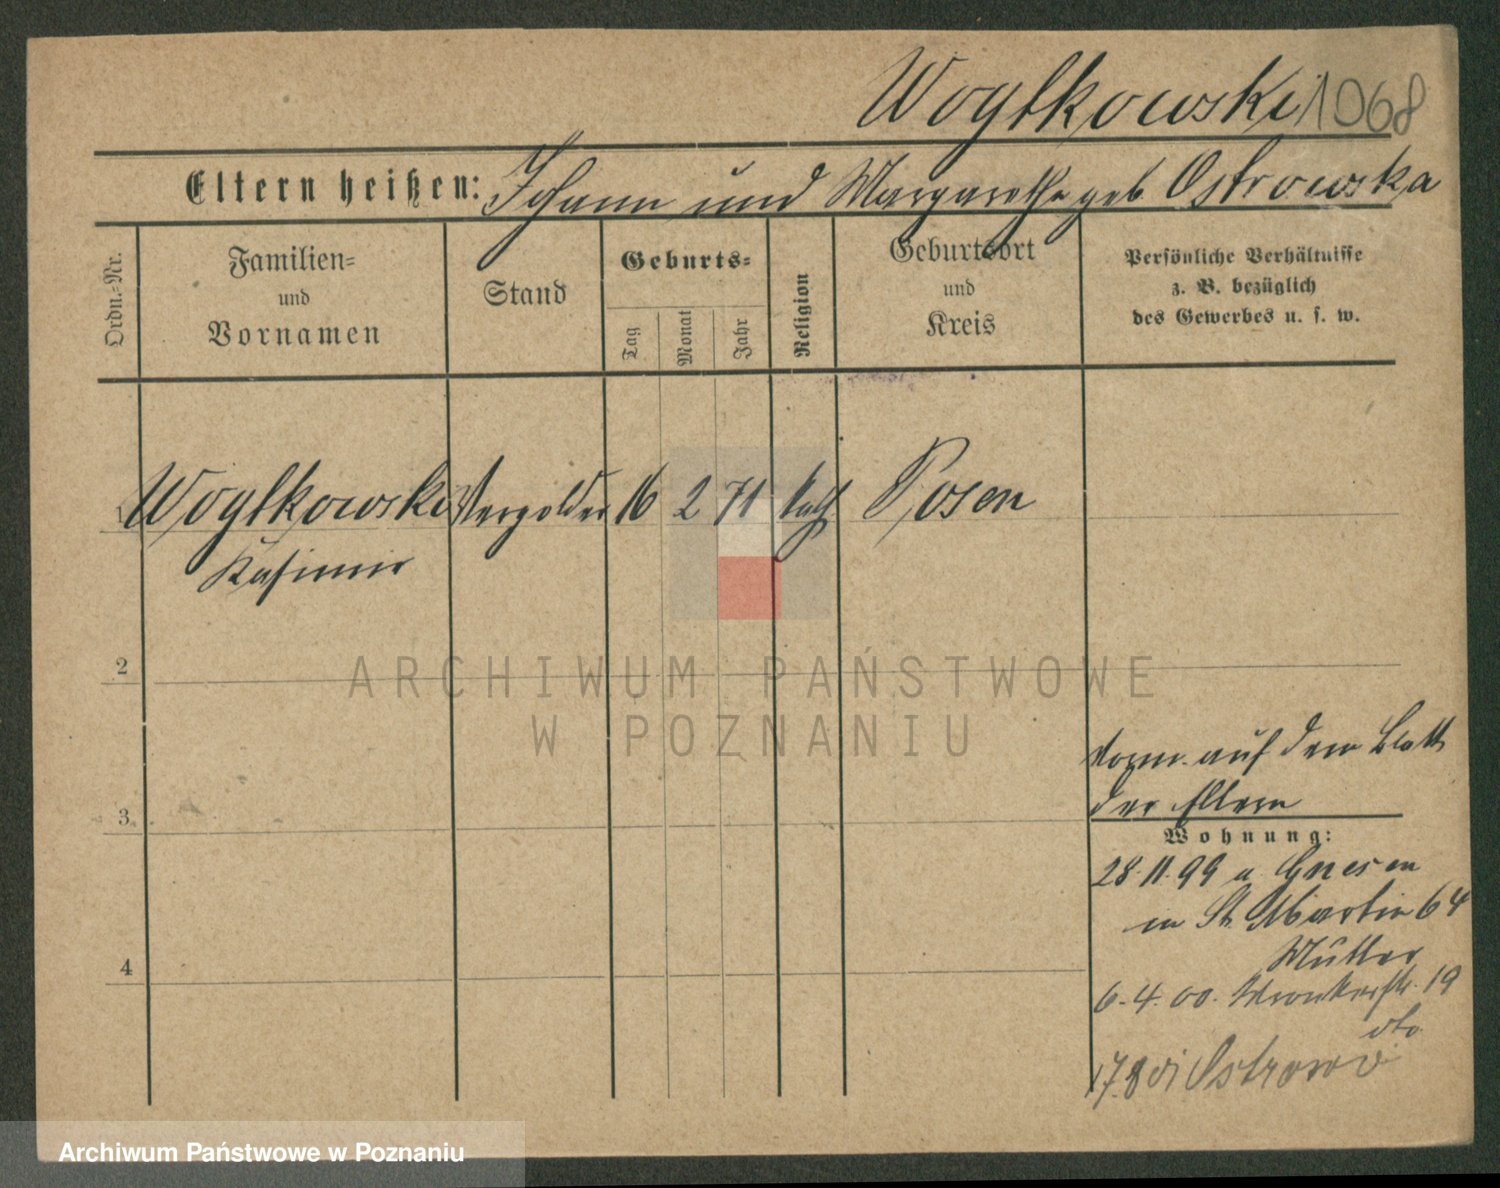 Woytkowski 1068
Eltern heißen: Johann und Margarethe geb Ostrowska
Ordn.-Nr.
Familien-
und
Vornamen
Stand
Geburts-
Tag
Monat
Jahr
Religion
Geburtsort
und
Kreis
Persönliche Verhältnisse
z. B. bezüglich
des Gewerbes u. s. w.
1 Woytkowski Vergolder 16 2 71 kath Posen
Kasimir
2
ARCHIWUM PAŃSTWOWE
W POZNANIU
3
4
Vorm. auf dem Blatt
der Eltern
Wohnung:
28.11.99 a Gnesen
in St. Martin 64
Mutter
6.4.00. Wronkerstr. 19
dto
17.8 Ostrowo
Archiwum Państwowe w Poznaniu